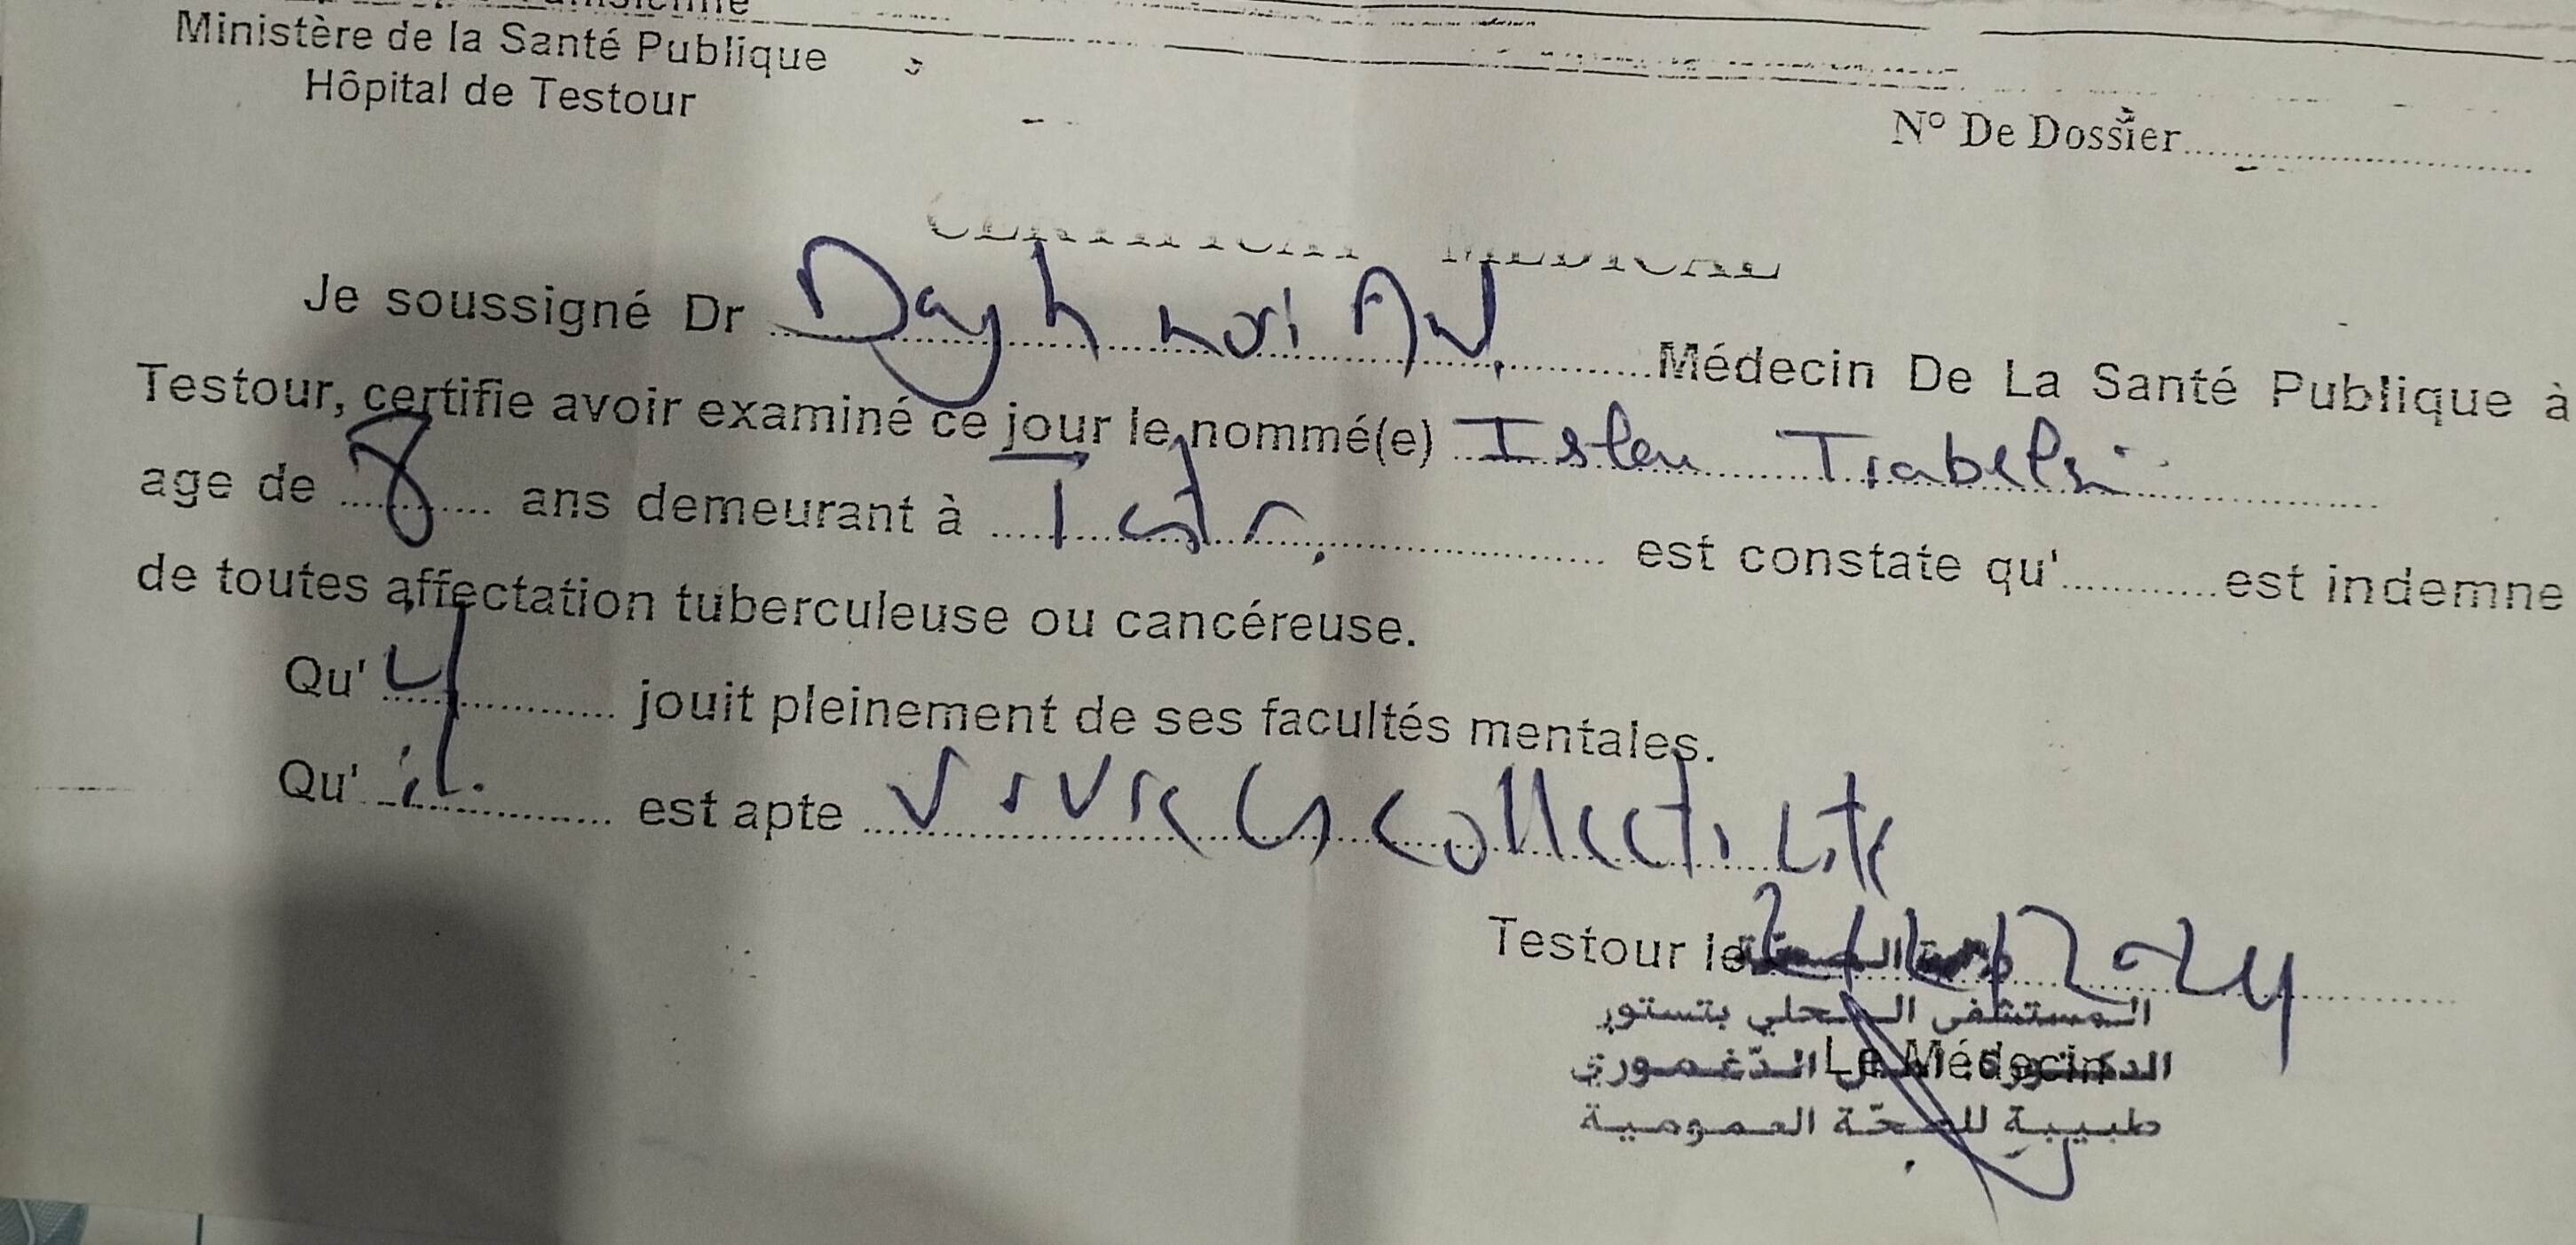 Ministère de la Santé Publique
Hôpital de Testour
N° De Dossier
CERTIFICAT MEDICAL
Je soussigné Dr Daghmori Médecin De La Santé Publique à
Testour, certifie avoir examiné ce jour le nommé(e) Islem Trabelsi
age de 8 ans demeurant à est constate qu' est indemne
de toutes affectation tuberculeuse ou cancéreuse.
Qu' il jouit pleinement de ses facultés mentales.
Qu' il est apte vivre en collectivité
Testour le 2024
المستشفى المحلي بتستور
Le Médecin
الدكتورة أمل الدّغموري
طبيبة للصحّة العمومية